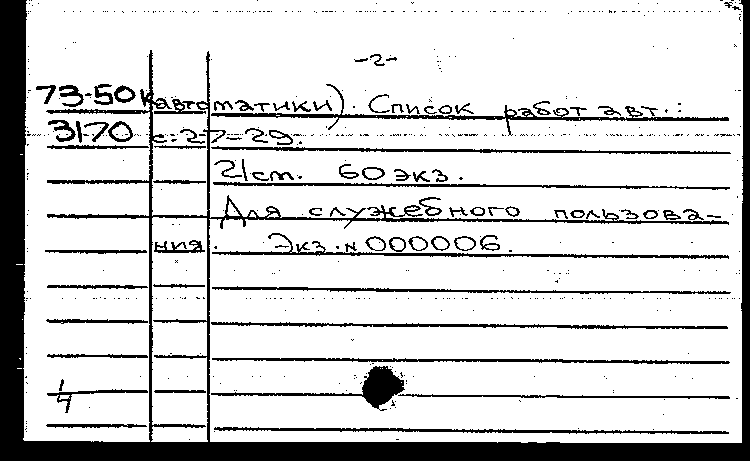 -2-
73-50к автоматики). Список работ авт.:
3170 с. 27-29.
21 cm. 60 экз.
Для служебного пользова-
ния. Экз. N 000006.
1/4